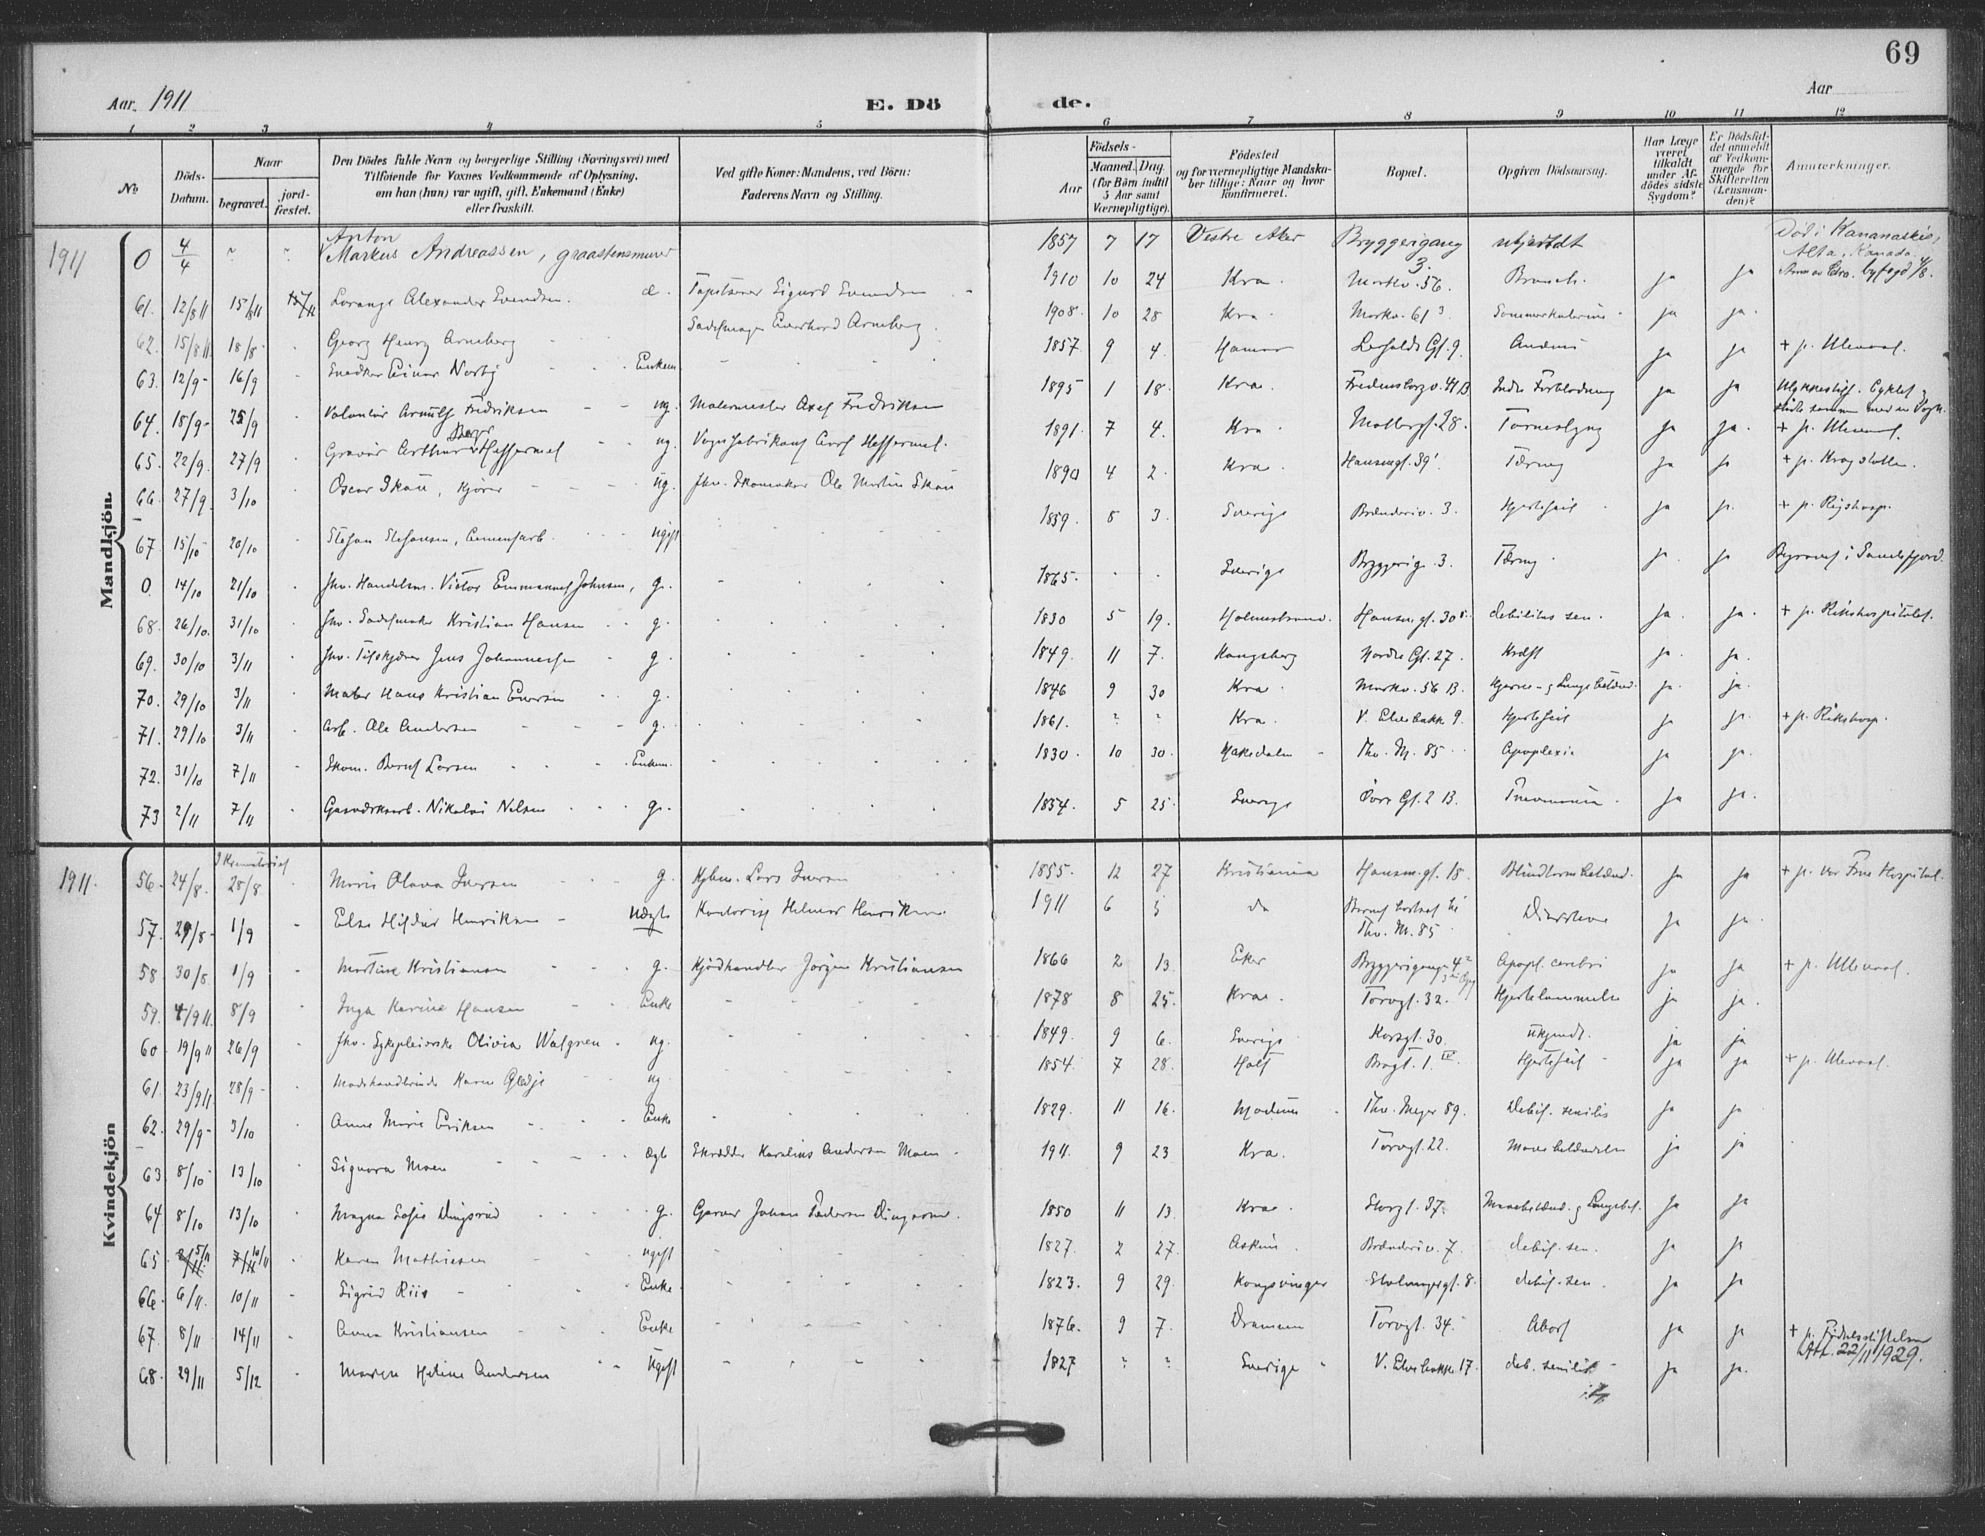 69
Aar 1911
E. Dö de.
Aar
1 2 3 4 5 6 7 8 9 10 11 12
No
Döds-Datum.
Naar
begravet.
jord-fæstet.
Den Dödes fulde Navn og borgerlige Stilling (Næringsvei) med Tilföiende for Voxnes Vedkommende af Oplysning, om han (hun) var ugift, gift, Enkemand (Enke) eller fraskilt.
Ved gifte Koner: Mandens, ved Börn: Faderens Navn og Stilling.
Födsels-
Aar
Maaned. Dag.
(for Börn indtil 5 Aar samt Værnepligtige).
Födested og for værnepligtige Mandskaber tillige: Naar og hvor konfirmeret.
Bopæl.
Opgiven Dödsaarsag.
Har Læge været tilkaldt under Afdödes sidste Sygdom?
Er Dödsfaldet anmeldt af Vedkommende for Skifteretten (Lensmanden)?
Anmærkninger.
Mandkjön
1911 0 4/4 " " Anton Markus Andreassen, graastensmurer 1857 7 17 Vestre Aker Bryggerigang 3. ubekjendt Död i Kananaskis, Alta, Kanada.
61. 12/8 11 15/8 11 Lorang Alexander Svendsen. Tapetserer Sigurd Svendsen 1910 10 24 Kra. Markv. 56. Bronch. ja ja
62. 15/8 11 18/8 Georg Henry Arneberg Sadelmager Everhard Arneberg. 1908. 10 28 Kra. Markv. 61 3 ja ja.
63. 12/9 16/9 Snedker Einar Norby Enkem. 1857. 9 4. Hamar Gl. 9. Anæmi ja ja + p. Ullevaal.
64. 18/9 25/9 Volontör Arnulf Fredriksen ug. Malermester Axel Fredriksen 1895 1 18. Kra. Fredensborgv. 41 B Indre Forblödning ja ja
65. 22/9. 27/9 Gravör Arthur Berger Heffermel ug. Vognfabrikant Carl Heffermel. 1891. 7 4. Kra. 28. ja ja. + p. Ullevaal.
66. 27/9 3/10 Oscar Skau, kjörer ug. fhv. Skomaker Ole Martin Skau 1890 4 2. Kra. Hausmgt. 39 Tæring ja ja + p. Krogstötten.
67. 15/10 20/10 Stefan Stefansen, Cementarb. ugift 1859. 8 3. Sverige Brænneriv. 3. Hjertefeil ja ja. + p. Rigshosp.
0. 14/10 21/10 fhv. Handelsm. Victor Emmanuel Johnsen, g. 1865. Sverige Bryggerig. 3. Tæring ja. ja Begravet i Sandefjord.
68. 26/10. 31/10 fhv. Sadelmaker Kristian Hansen g. 1830 5 19. Holmestrand. Hausm. gt. 30 debilitas sen. ja. ja. + p. Rikshospitalet.
69. 30/10 3/11 fhv. Jens Johannessen g. 1849. 11 7. Kongsberg Nordre Gt. 27. Kræft ja. ja.
70. 29/10 3/11 Maler Hans Kristian Eversen g. 1846 9 30 Kra. Markv. 56 B. Hjerne- og Lungebetænd. ja. ja.
71. 29/10 3/11 Arb. Ole Andersen g. 1861. ? ? Kra. V. Elvebakke 9. Hjertefeil ja ja. + p. Rikshosp.
72. 31/10 7/11 Skom. Bernt Larsen Enkem. 1830 10 30. Hakedalen Thv. M. 85 Apoplexia ja ja.
73 2/11 7/11 Gasværksarb. Nikolai Nelsen g. 1834. 5 25. Sverige Övre Gt. 2 B. Pneumonia. ja ja.
Kvindekjön
1911. 56. 24/8. I Krematoriet 28/8 Marie Olava Iversen g. Kjbm. Lars Iversen 1855. 12 27 Kristiania Hausm. gt. 15. Blindtarmbetænd. ja ja + p. Vor Frue Hospital.
57. 29/8 1/9 Else Hildur Henriksen Uægte Kontorist Helmer Henriksen. 1911 6 5 do Thv. M. 85 Diarrhoe ja ja.
58 30/8 1/9 Martine Kristiansen g. Kjödhandler Jörgen Kristiansen 1866 2 13. Eker Bryggerigang. 4 Apopl. cerebri ja ja + p. Ullevaal.
59. 4/9 11. 8/9 Inga Karine Hansen Enke 1878 8 25. Kra. Torvgt. 32. Hjertelammelse ja ja.
60. 19/9 11 26/9 fhv. Sykepleierske Olivia Walgren. ug. 1849. 9 6. Sverige Korsgt. 30. ukjendt. ja ja
61. 23/9 11 28/9 Madhandlerinde Karen Gledje ug 1854. 7 28. Holt Brogt. 1. IV Hjertefeil ja ja + p. Ullevaal.
62. 29/9 3/10 Anne Marie Eriksen Enke 1829. 11 16. Modum Thv. Meyer 89. Debil. senilis ja ja
63. 8/10 13/10 Signora Moen Ægte Skrædder Karelius Andersen Moen 1911. 9 23 Kra. Torvgt. 22. Mavebetændelse ja ja
64 8/10 13/10 Magna Sofie Dingsrud g. Garver Johan Pedersen Dingsrud. 1850 11 13. Kra. Storgt. 37. Mavebetænd. og Lungebet. ja ja
65 5/11 10/11 Karen Mathiesen ugift 1827. 2 27. Askim. Brænneriv. 7. debil. sen. ja ja
66. 6/11. 10/11 Sigrid Riis Enke. 1823. 9 29. Kongsvinger Stolmagergt. 8. debil. sen. ja ja
67. 8/11 14/11 Anna Kristiansen Enke 1876. 9 7. Drammen Torvgt. 34. Abort ja ja + p. Födselsstiftelsen Att. 22/11 1929.
68. 29/11 5/12 Maren Helene Andersen Ugift 1827 ? ? Sverige V. Elvebakke 17. deb. senilis ja ja.